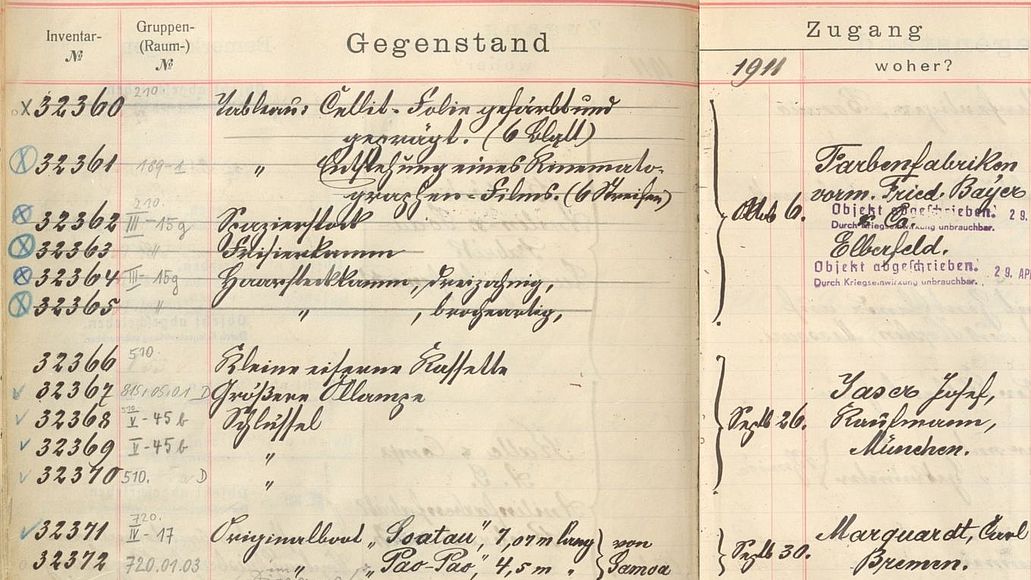 Inventar-
№
Gruppen-
(Raum-)
№
Gegenstand
Zugang
1911
woher?
210
x 32360 Tableau: Cellit-Folie gefärbt und
geprägt. (6 Blatt)
32361 189-1 " Entstehung eines Kinemato-
graphen-Films. (6 Streifen)
Farbenfabriken
vorm. Fried. Bayer
& Co.
Elberfeld.
Oktob. 6.
210.
32362 III-15g Spazierstock
32363 Frisierkamm
32364 III-15g Haarsteckkamm, dreizahnig,
32365 " " , brocheartig,
Objekt abgeschrieben. 29.
Durch Kriegseinwirkung unbrauchbar.
Objekt abgeschrieben. 29. AP
Durch Kriegseinwirkung unbrauchbar.
32366 510 Kleine eiserne Kassette
32367 815.05.01 D Größere Öllampe
32368 V-45b Schlüssel
32369 V-45b "
32370 510. D "
Septb. 26.
Josef,
Kaufmann,
München.
720.
32371 IV-17 Originalboot "Soatau", 7,07 m lang
32372 720.01.03 " "Pao-Pao", 4,5 m "
von
Samoa
Septb. 30.
Marquardt, Carl
Bremen.